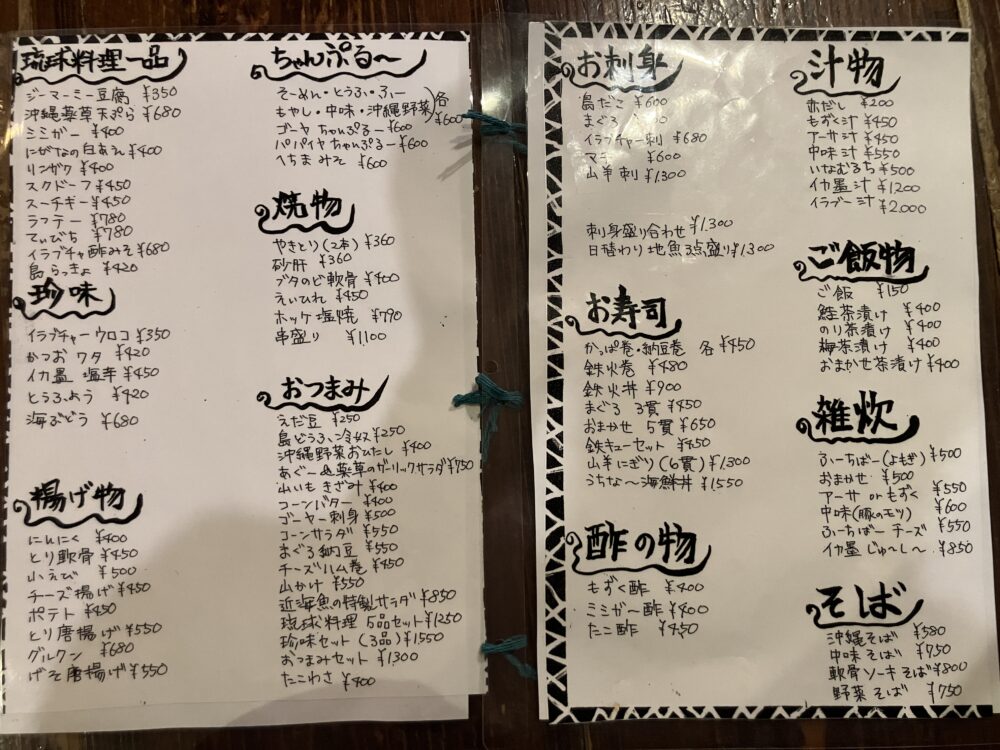 琉球料理一品
ジーマーミー豆腐 ¥350
沖縄薬草天ぷら ¥680
ミミガー ¥400
にがなの白あえ ¥400
リンザク ¥400
スクドーフ ¥450
スーチギー ¥450
ラフテー ¥780
てぃびち ¥780
イラブチャ酢みそ ¥680
島らっきょ ¥420
珍味
イラブチャーウロコ ¥350
かつおワタ ¥420
イカ墨塩辛 ¥450
とうふよう ¥420
海ぶどう ¥680
揚げ物
にんにく ¥400
とり軟骨 ¥450
小えび ¥500
チーズ揚げ ¥450
ポテト ¥450
とり唐揚げ ¥550
グルクン ¥680
げそ唐揚げ ¥550
ちゃんぷる〜
そーめん・とうふ・ふー
もやし・中味・沖縄野菜 各¥600
ゴーヤちゃんぷるー ¥600
パパイヤちゃんぷるー ¥600
へちまみそ ¥600
焼物
やきとり(2本) ¥360
砂肝 ¥360
ブタのど軟骨 ¥400
えいひれ ¥450
ホッケ塩焼 ¥790
串盛り ¥1100
おつまみ
えだ豆 ¥250
島どうふ冷奴 ¥250
沖縄野菜おひたし ¥400
あぐー&薬草のガーリックサラダ ¥750
山いもきざみ ¥400
コーンバター ¥400
ゴーヤー刺身 ¥500
コーンサラダ ¥550
まぐろ納豆 ¥550
チーズハム巻 ¥450
山かけ ¥550
近海魚の特製サラダ ¥850
琉球料理5品セット ¥1250
珍味セット(3品) ¥1550
おつまみセット ¥1300
たこわさ ¥400
お刺身
島だこ ¥600
まぐろ
イラブチャー刺 ¥680
マチ ¥600
山羊刺 ¥1300
刺身盛り合わせ ¥1300
日替わり地魚3点盛り ¥1300
お寿司
かっぱ巻・納豆巻 各¥450
鉄火巻 ¥480
鉄火丼 ¥900
まぐろ3貫 ¥450
おまかせ5貫 ¥650
鉄キューセット ¥450
山羊にぎり(6貫) ¥1300
うちな〜海鮮丼 ¥1550
酢の物
もずく酢 ¥400
ミミガー酢 ¥400
たこ酢 ¥450
汁物
赤だし ¥200
もずく汁 ¥450
アーサ汁 ¥450
中味汁 ¥550
いなむるち ¥500
イカ墨汁 ¥1200
イラブー汁 ¥2000
ご飯物
ご飯 ¥150
鮭茶漬け ¥400
のり茶漬け ¥400
梅茶漬け ¥400
おまかせ茶漬け ¥400
雑炊
ふーちばー(よもぎ) ¥500
おまかせ ¥500
アーサorもずく ¥550
中味(豚のモツ) ¥600
ふーちばーチーズ ¥550
イカ墨じゅ〜し〜 ¥850
そば
沖縄そば ¥580
中味そば ¥750
軟骨ソーキそば ¥800
野菜そば ¥750